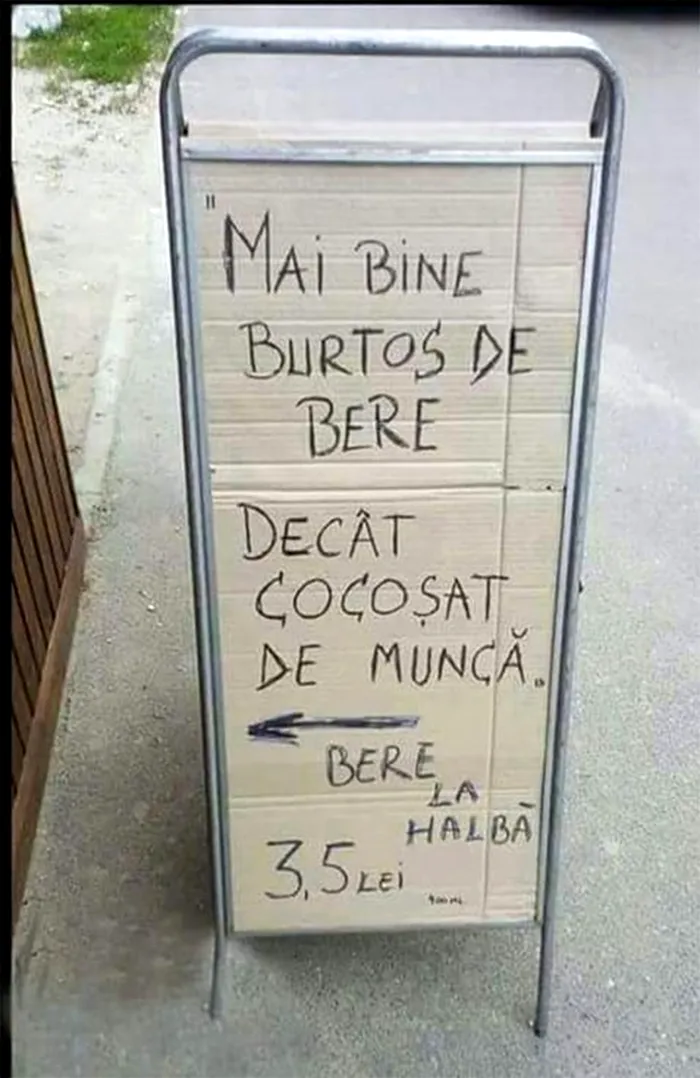 "MAi BiNE
BURTOS DE
BERE
DECÂT
COCOȘAT
DE MUNCĂ„
BERE
LA
HALBĂ
3,5 LEI
400 ML